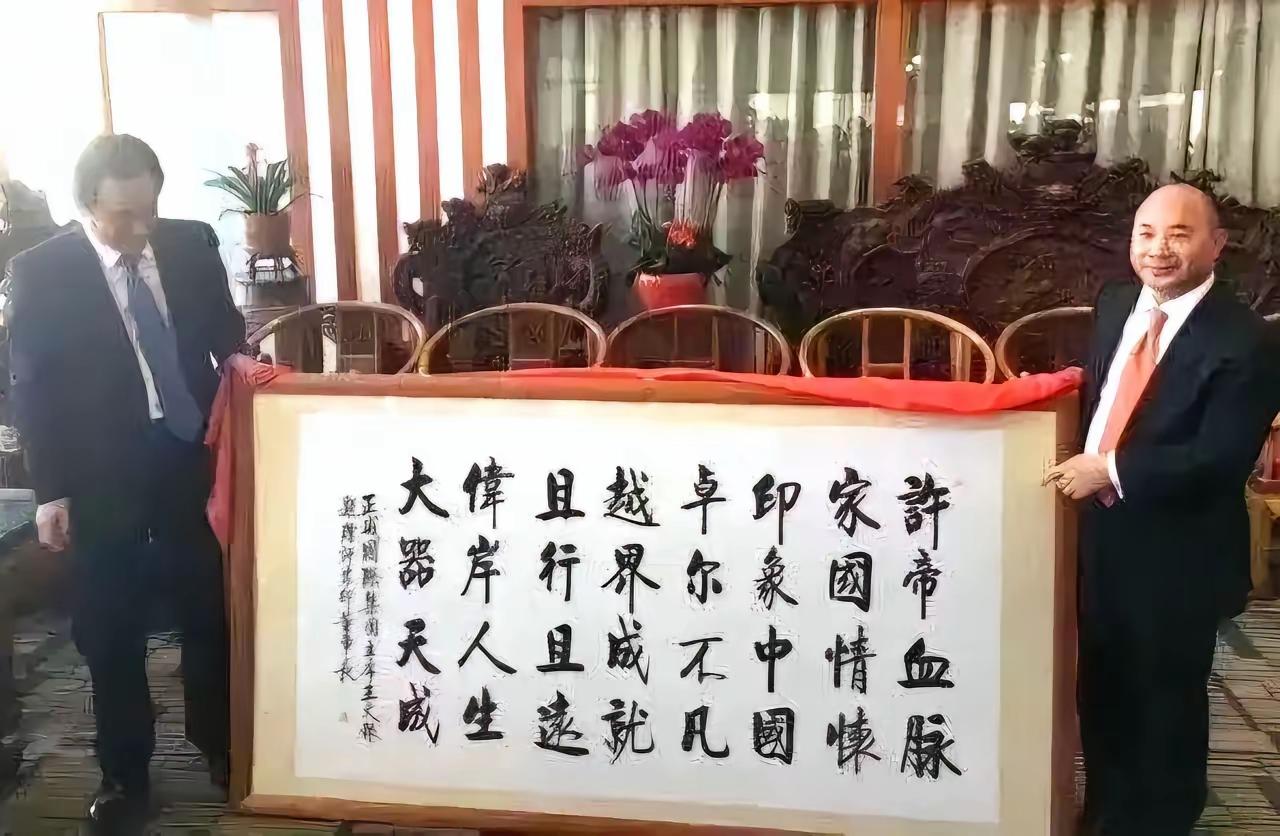 許帝血脉
家國情懷
印象中國
卓尔不凡
越界成就
且行且遠
偉岸人生
大器天成
國際集團主席王文
董事長